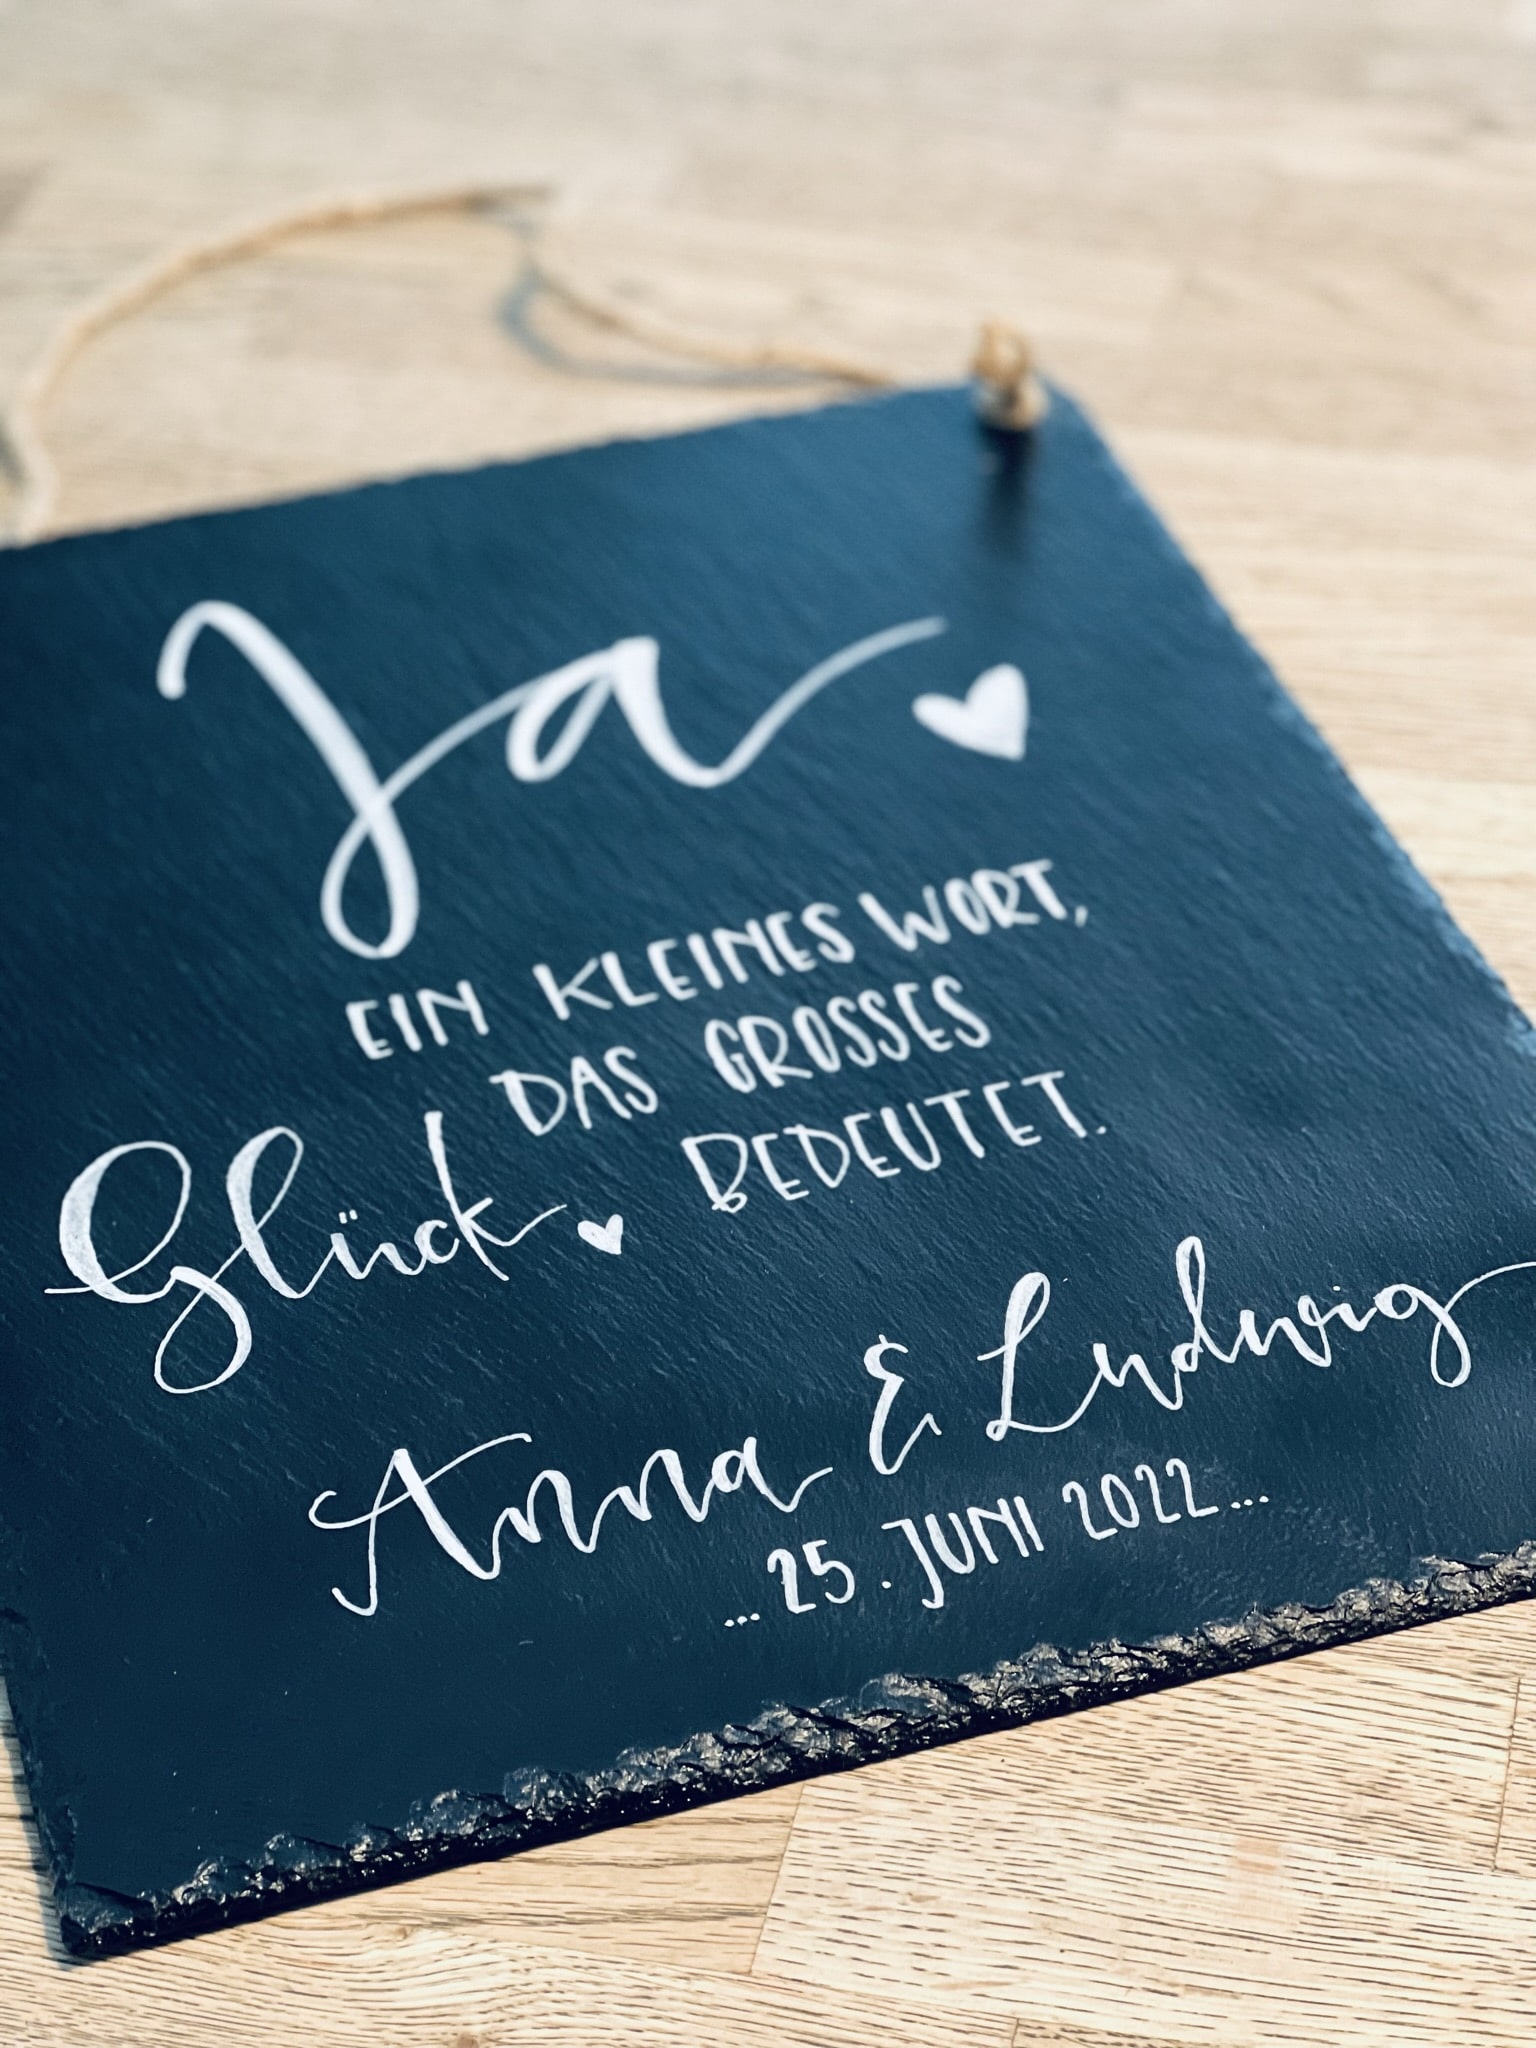 Ja
EIN KLEINES WORT,
DAS GROSSES
Glück BEDEUTET.
Anna & Ludwig
...25. JUNI 2022...